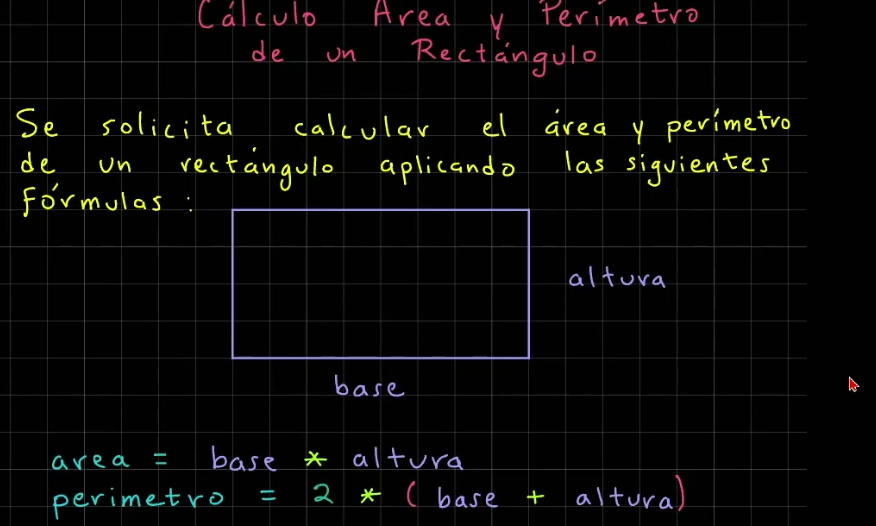 Cálculo Área y Perímetro
de un Rectángulo
Se solicita calcular el área y perímetro
de un rectángulo aplicando las siguientes
fórmulas:
altura
base
area = base * altura
perimetro = 2 * (base + altura)